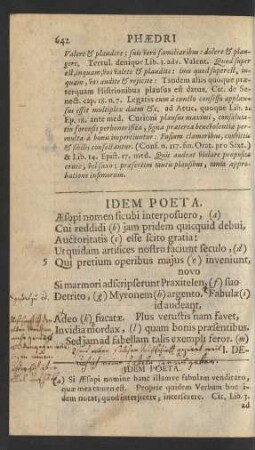 642 PHÆDRI
Valere & plaudere; suis verò familiaribus: dolere & plan-
gere. Tertul. denique Lib. 1. adv. Valent. Quod super
est, inquam, vos valete & plaudite: imo quod superest, in-
quam, vos audite & rejicite: Tandem alius quoque præ-
terquam Histrionibus plausus est datus, Cic. de Se-
nect. cap. 18. n. 7. Legatis cum à cuncto consessu applau-
sus esset multiplex datus &c. ad Attic. quoque Lib. 2.
Ep. 18. ante med. Curioni plausus maximi, consalutа-
tio forensis perhonorifica, signa præterea benevolentia per-
multa à bonis impertiuntur: Fusium clamoribus, convitiis
& sibilis consectantur. (Conf. n. 117. fin. Orat. pro Sext.)
& Lib. 14. Epist. 17. med. Quis audeat violare proposita
cruce, vel saxo; præsertim tantis plausibus, tanta appro-
batione infimorum.
IDEM POETA.
Æsopi nomen sicubi interposuero, (a)
Cui reddidi (b) jam pridem quicquid debui,
Auctoritatis (c) esse scito gratia;
Ut quidam artifices nostro faciunt seculo, (d)
5 Qui pretium operibus majus (e) inveniunt,
novo
Si marmori adscripserunt Praxitelen (f) suo
Detrito, (g) Myronem (h) argento. Fabulæ (i)
id audeant,
Adeo (k) fucatæ. Plus vetustis nam favet,
Invidia mordax, (l) quam bonis præsentibus.
Sed jam ad fabellam talis exempli feror. (m)
I. DE-
IDEM POETA.
(a) Si Æsopi nomine hanc illamve fabulam venditem,
quæ mea tamen est. Propriè quidem Verbum hoc i-
dem notat, quod interjicere, interserere. Cic. Lib. 3.
ad